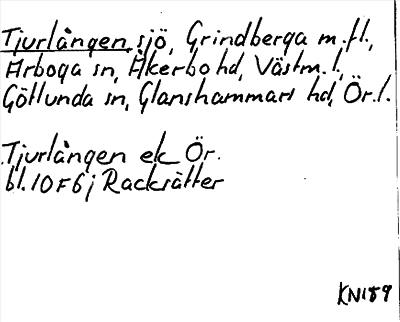 Tjurlången sjö, Grindberga m.fl.,
Arboga sn, Åkerbo hd, Västm.l.,
Götlunda sn, Glanshammars hd, Ör.l.
Tjurlången ek Ör.
bl. 10F6j Racksätter
KN189